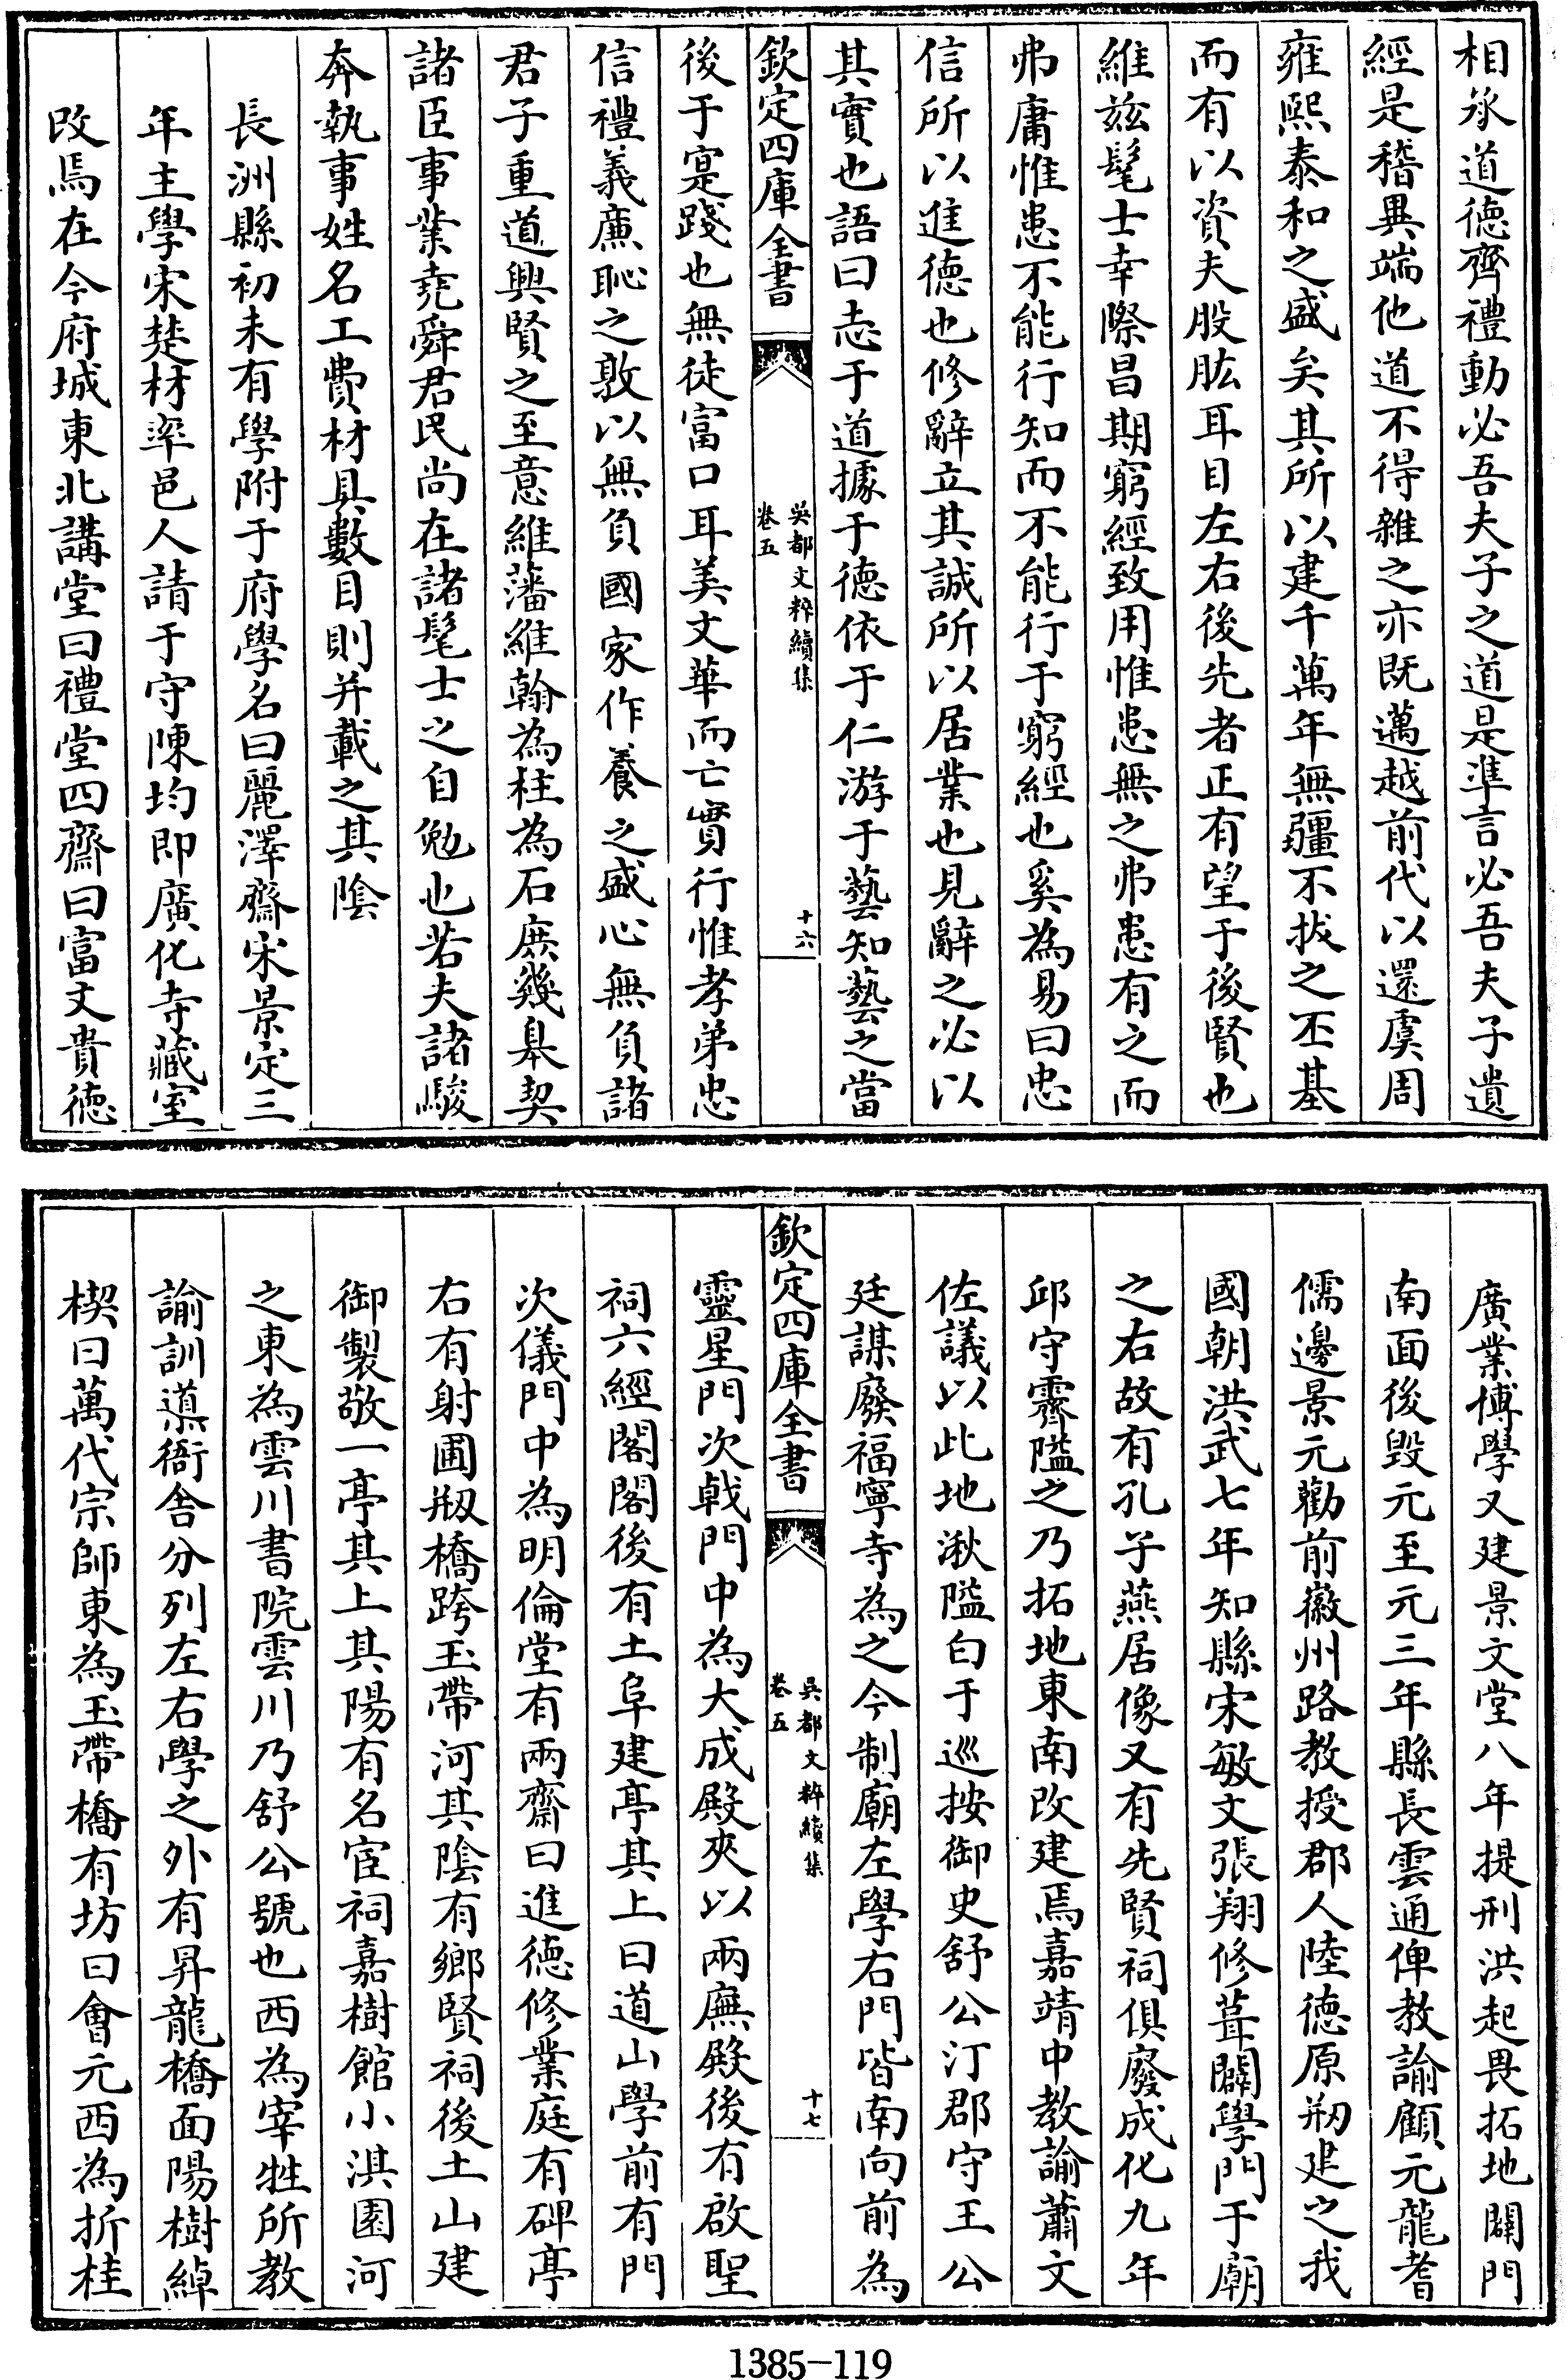 相承道德齊禮動必吾夫子之道是準言必吾夫子遺
經是稽異端他道不得雜之亦既邁越前代以還虞周
雍熙泰和之盛矣其所以建千萬年無疆不拔之丕基
而有以資夫股肱耳目左右後先者正有望于後賢也
維兹髦士幸際昌期窮經致用惟患無之弗患有之而
弗庸惟患不能行知而不能行于窮經也奚為易曰忠
信所以進德也修辭立其誠所以居業也見辭之必以
其實也語曰志于道據于德依于仁游于藝知藝之當
欽定四庫全書
吳都文粹續集
卷五
十六
後于寔踐也無徒富口耳美文華而亡實行惟孝弟忠
信禮義廉恥之敦以無負國家作養之盛心無負諸
君子重道興賢之至意維藩維翰為柱為石庶幾臯契
諸臣事業堯舜君民尚在諸髦士之自勉也若夫諸駿
奔執事姓名工費材具數目則并載之其陰
長洲縣初未有學附于府學名曰麗澤齋宋景定三
年主學宋楚材率邑人請于守陳均即廣化寺藏室
改焉在今府城東北講堂曰禮堂四齋曰富文貴德
廣業博學又建景文堂八年提刑洪起畏拓地闢門
南面後毀元至元三年縣長雲通俾教諭顧元龍耆
儒邊景元勸前徽州路教授郡人陸德原剏建之我
國朝洪武七年知縣宋敏文張翔修葺闢學門于廟
之右故有孔子燕居像又有先賢祠俱廢成化九年
邱守霽隘之乃拓地東南改建焉嘉靖中教諭蕭文
佐議以此地湫隘白于巡按御史舒公汀郡守王公
廷謀廢福寧寺為之今制廟左學右門皆南向前為
欽定四庫全書
吳都文粹續集
卷五
十七
靈星門次戟門中為大成殿夾以兩廡殿後有啟聖
祠六經閣閣後有土阜建亭其上曰道山學前有門
次儀門中為明倫堂有兩齋曰進德修業庭有碑亭
右有射圃剏橋跨玉帶河其陰有鄉賢祠後土山建
御製敬一亭其上其陽有名宦祠嘉樹館小淇園河
之東為雲川書院雲川乃舒公號也西為宰牲所教
諭訓導衙舍分列左右學之外有昇龍橋面陽樹綽
楔曰萬代宗師東為玉帶橋有坊曰會元西為折桂
1385-119